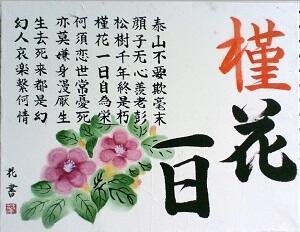 槿花
一日
泰山不要欺毫末
顔子无心羨老彭
松樹千年終是朽
槿花一日自為栄
何須恋世常憂死
亦莫嫌身漫厭生
生去死来都是幻
幻人哀楽繋何情
花書